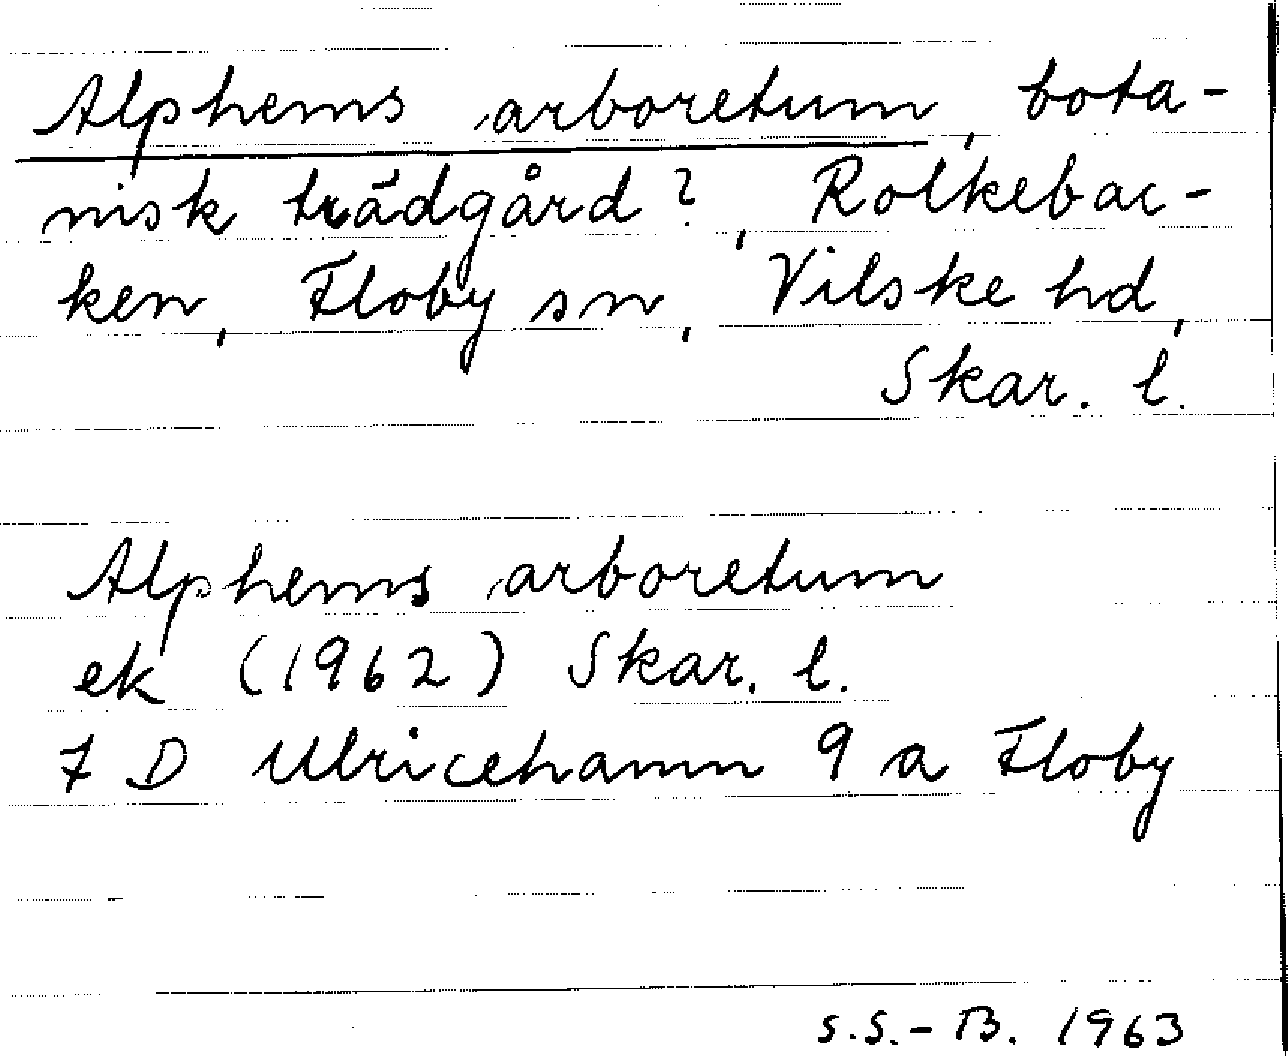 Alphems arboretum, bota-
nisk trädgård?, Rolkebac-
ken, Floby sn, Vilske hd,
Skar. l.
Alphems arboretum
ek (1962) Skar. l.
7 D Ulricehamn 9 a Floby
S.S.-B. 1963